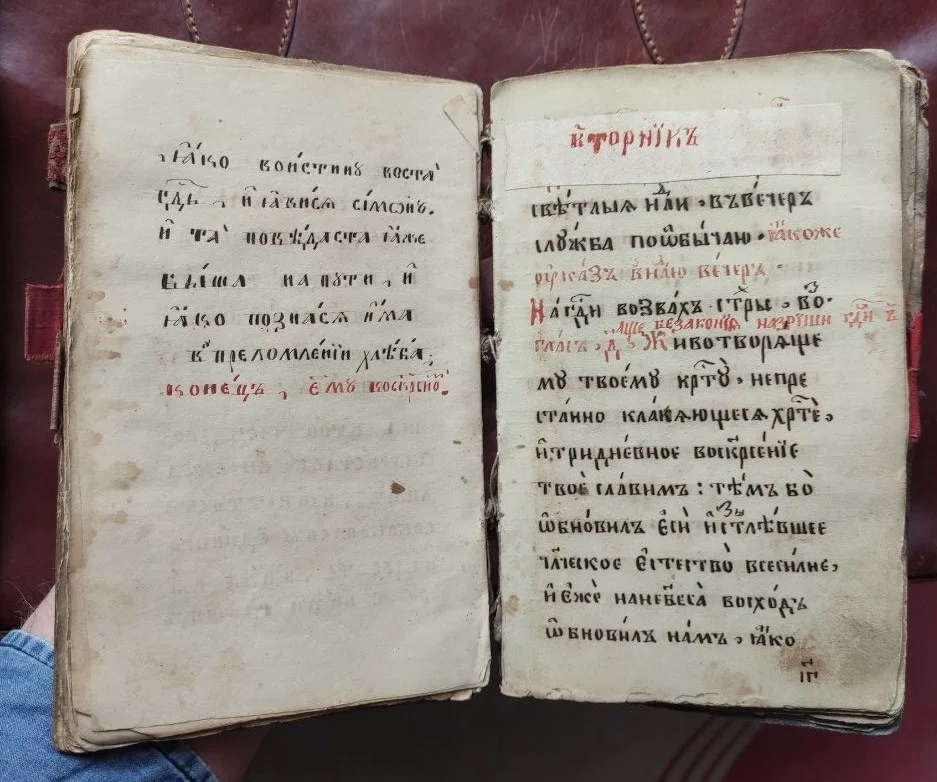 ꙗ҆́кѡ вои́стинꙋ воста̀
гдⷭ҇ь, и҆ ꙗ҆ви́сѧ сі́мѡнꙋ.
и҆ та̀ повѣ́даста ꙗ҆́же
бы́ша на пути̂, и҆
ꙗ҆́ко позна́сѧ и҆́ма
в̾ преломле́нїи хлѣ́ба,
коне́цъ, є҆мꙋ̀ воскрⷭ҇но.
вто́рникъ
свѣ́тлыѧ нⷣли, въ ве́черъ
слꙋ́жба по ѡ҆бы́чаю. ꙗ҆́коже
в нⷣлю ве́черъ.
На гдⷭ҇и воззва́хъ. стⷯры, во.
а҆́ще беззако́нїѧ назриши гдⷭ҇и
гла́съ, д҃. Животворѧ́ще
мꙋ̀ твоемꙋ̀ крⷭ҇тꙋ̀, непре
ста́нно кла́нѧющесѧ хрⷭ҇тѐ,
и҆ тридне́вное воскрⷭ҇е́нїе
твоѐ сла́вимъ: тѣ́мъ бо
ѡ҆бнови́лъ є҆сѝ и҆стлѣ́вшее
чл҃ческое є҆стество̀ всеси́лне,
и҆ є҆́же на небеса̀ восхо́дъ
ѡ҆бнови́лъ на́мъ, ꙗ҆́ко